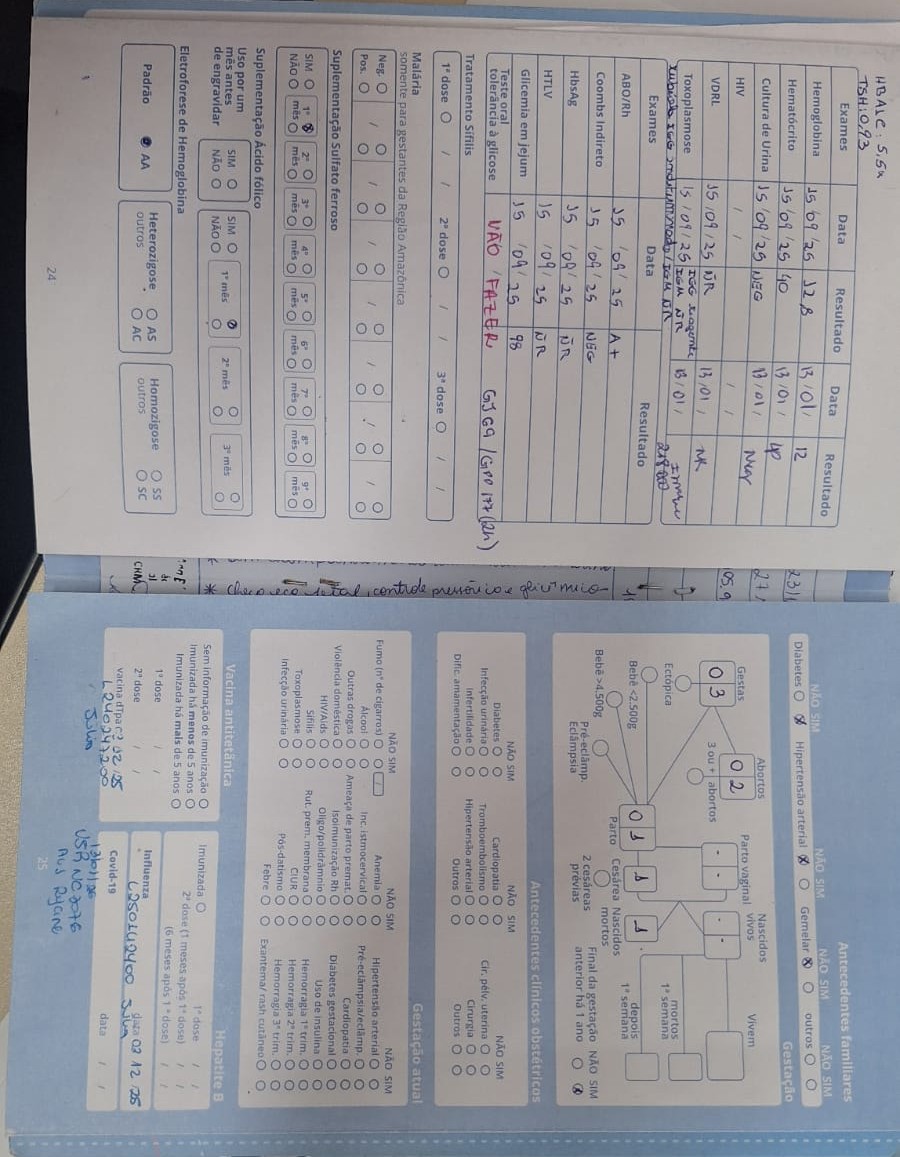 HBA1C: 5,5%
TSH: 0,93
Exames Data Resultado Data Resultado
Hemoglobina 15/09/25 12,8 13/01/ 12
Hematócrito 15/09/25 40 13/01/ 40
Cultura de Urina 15/09/25 NEG 13/01/ Neg
HIV / / / /
VDRL 15/09/25 ÑR 13/01/ NR
Toxoplasmose 15/09/25 IGG reagente IGM ÑR 13/01/ Imune
IGM ÑR 218000
Exames Data Resultado
ABO/Rh 15/09/25 A+
Coombs Indireto 15/09/25 NEG
HbsAg 15/09/25 ÑR
HTLV 15/09/25 ÑR
Glicemia em jejum 15/09/25 98
Teste oral
tolerância à glicose NÃO FAZER GJ 99/GPP 177 (2h)
Tratamento Sífilis
1ª dose / / 2ª dose / / 3ª dose / /
Malária
somente para gestantes da Região Amazônica
Neg. / / / / / / /
Pos.
Suplementação Sulfato ferroso
SIM 1º 2º 3º 4º 5º 6º 7º 8º 9º
NÃO mês mês mês mês mês mês mês mês mês
Suplementação Ácido fólico
Uso por um
mês antes
de engravidar
SIM
NÃO
SIM
NÃO
1º mês 2º mês 3º mês
Eletroforese de Hemoglobina
Padrão AA Heterozigose AS Homozigose SS
outros AC outros SC
24
* checo eco fetal, controle pressórico e glicêmico
Antecedentes familiares
NÃO SIM NÃO SIM NÃO SIM NÃO SIM
Diabetes Hipertensão arterial Gemelar outros
Gestação
Gestas Abortos Parto vaginal Nascidos vivos Vivem
03 02 - - - -
3 ou + abortos
Ectópica
mortos
1ª semana
01 1 1
Bebê <2.500g
Parto Cesárea Nascidos
mortos
depois
1ª semana
Bebê >4.500g
Pré-eclâmp.
Eclâmpsia
2 cesáreas
prévias
Final da gestação NÃO SIM
anterior há 1 ano
Antecedentes clínicos obstétricos
NÃO SIM NÃO SIM NÃO SIM
Diabetes Cardiopatia Cir. pélv. uterina
Infecção urinária Tromboembolismo Cirurgia
Infertilidade Hipertensão arterial Outros
Dific. amamentação Outros
Gestação atual
NÃO SIM NÃO SIM NÃO SIM
Fumo (nº de cigarros) Anemia Hipertensão arterial
Álcool Inc. istmocervical Pré-eclâmpsia/eclâmp.
Outras drogas Ameaça de parto premat. Cardiopatia
Violência doméstica Isoimunização Rh Diabetes gestacional
HIV/Aids Oligo/polidrâmnio Uso de insulina
Sífilis Rut. prem. membrana Hemorragia 1º trim.
Toxoplasmose CIUR Hemorragia 2º trim.
Infecção urinária Pós-datismo Hemorragia 3º trim.
Febre Exantema/ rash cutâneo
Vacina antitetânica
Sem informação de imunização
Imunizada há menos de 5 anos
Imunizada há mais de 5 anos
1ª dose / /
2ª dose / /
vacina dTpa
Hepatite B
Imunizada 1ª dose / /
2ª dose (1 meses após 1ª dose) / /
(6 meses após 1ª dose) / /
Influenza data 08 12 25
Covid-19 data / /
25